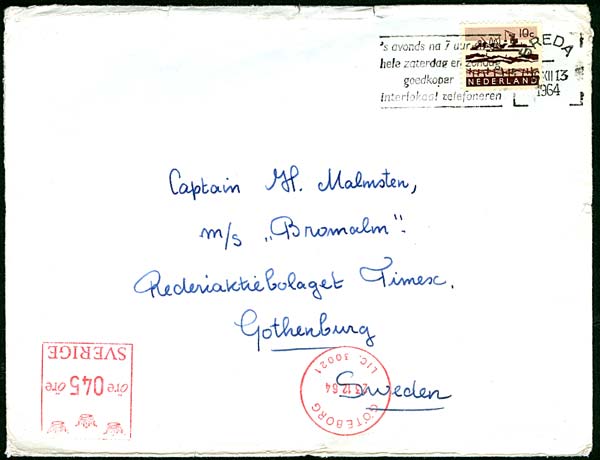 's avonds na 7 uur
hele zaterdag en zondag
goedkoper
interlokaal telefoneren
10c
NEDERLAND
BREDA
XII 13
1964
Captain H. Malmsten,
m/s „Bromalm".
Rederiaktiebolaget Timex.
Gothenburg
Sweden
SVERIGE
öre 045 öre
GÖTEBORG
LIC. 30021
12 64